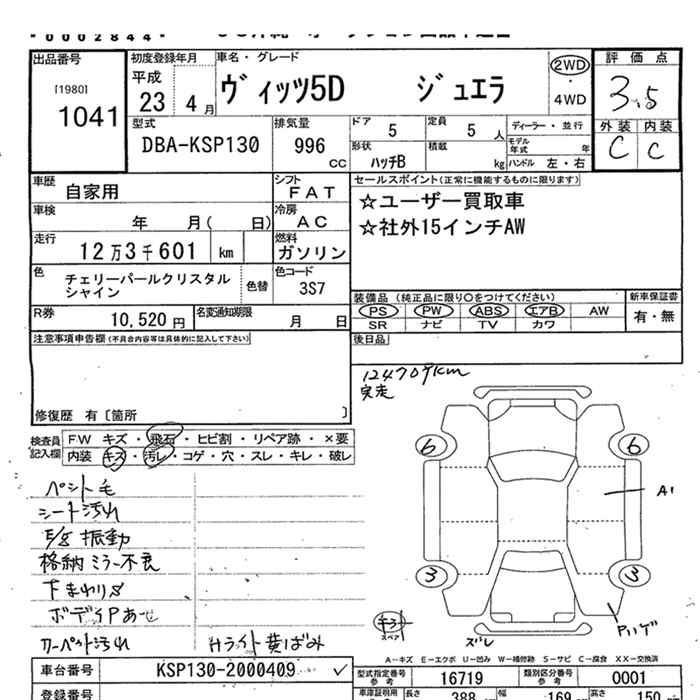 *00002844*
出品番号
[1980]
1041
初度登録年月
平成
23 4月
車名・グレード
ヴィッツ5D ジュエラ
2WD
・
4WD
評価点
3.5
外装 内装
C C
型式
DBA-KSP130
排気量
996 cc
ドア 5
定員 5 人
形状 ハッチB
積載 kg
ディーラー・並行
モデル年式 年
ハンドル 左・右
車歴 自家用
シフト FAT
車検 年 月( 日)
冷房 AC
走行 12万3千601 km
燃料 ガソリン
色 チェリーパールクリスタル
シャイン
色替
色コード 3S7
R券 10,520円
名変通知期限 月 日
セールスポイント(正常に機能するものに限ります)
☆ユーザー買取車
☆社外15インチAW
装備品 (純正品に限り○をつけてください)
PS PW ABS エアB AW
SR ナビ TV カワ
新車保証書
有・無
後日品
注意事項申告欄(不具合内容等は具体的に記入して下さい)
修復歴 有〔箇所 〕
124709km
実走
検査員
記入欄
FW キズ・飛石・ヒビ割・リペア跡・×要
内装 キズ・汚レ・コゲ・穴・スレ・キレ・破レ
ペット毛
シート汚れ
E/g 振動
格納ミラー不良
下まわりS
ボディPあせ
カーペット汚れ Hライト黄ばみ
6 6
A1
3 3
スペア
ズレ
Pハゲ
A-キズ E-エクボ U-凹み W-補修跡 S-サビ C-腐食 XX-交換済
車台番号 KSP130-2000409
型式指定番号
参考
16719
類別区分番号
参考
0001
登録番号
車庫証明用
長さ 388 幅 169 高さ 150